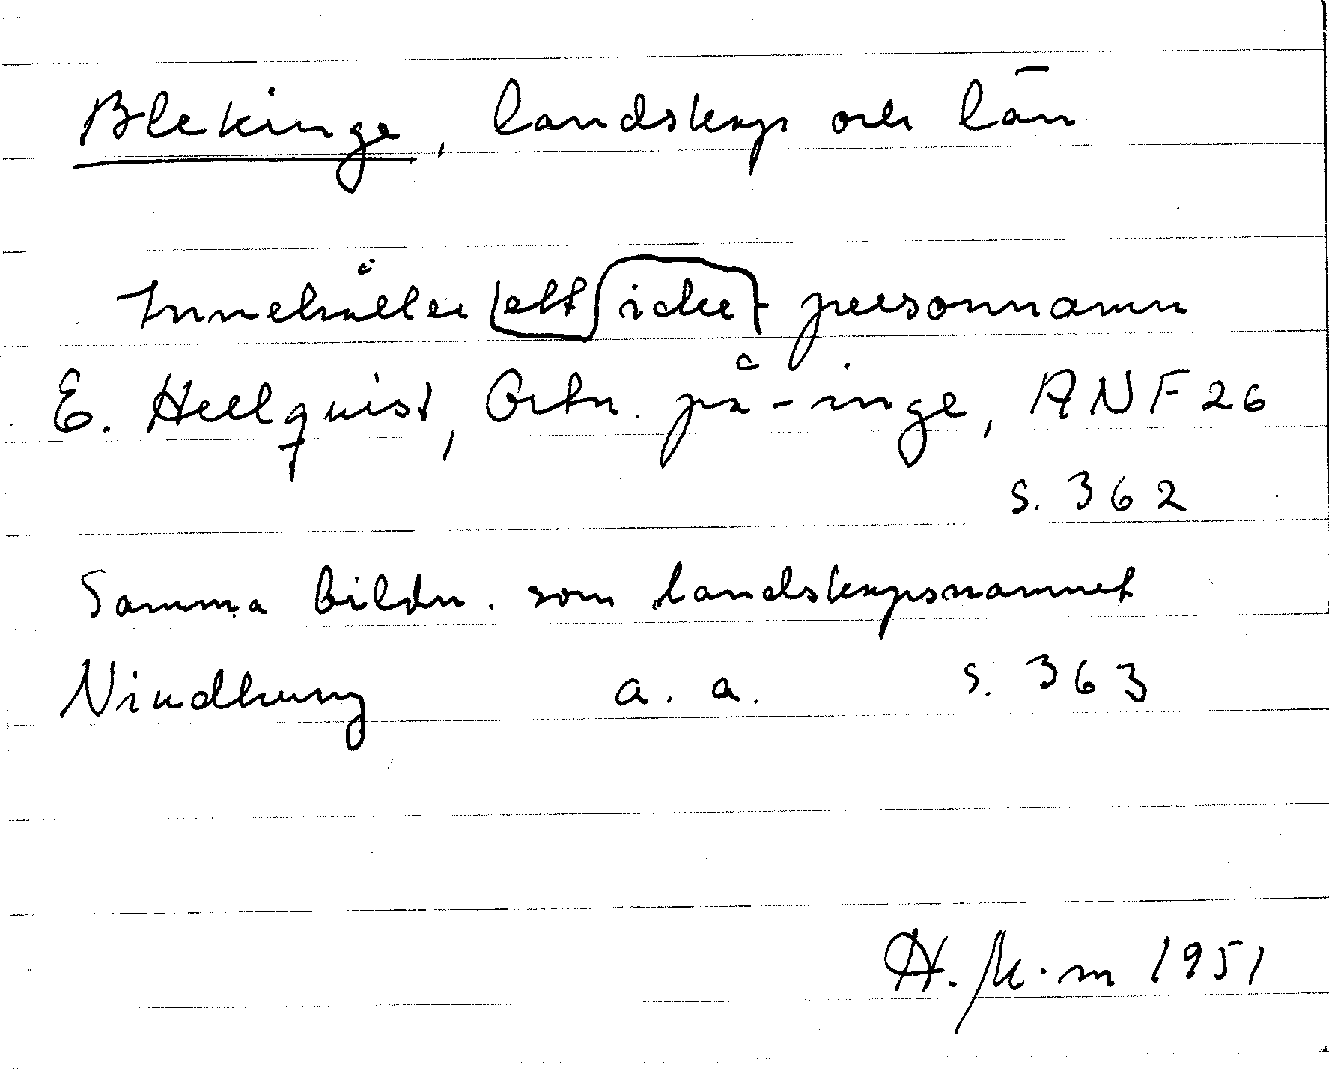 Blekinge, landskap och län
Innehåller ett icke-personnamn
E. Hellquist, Ortn. på -inge, ANF 26
s. 362
Samma bildn. som landskapsnamnet
Njudhung a. a. s. 363
1951